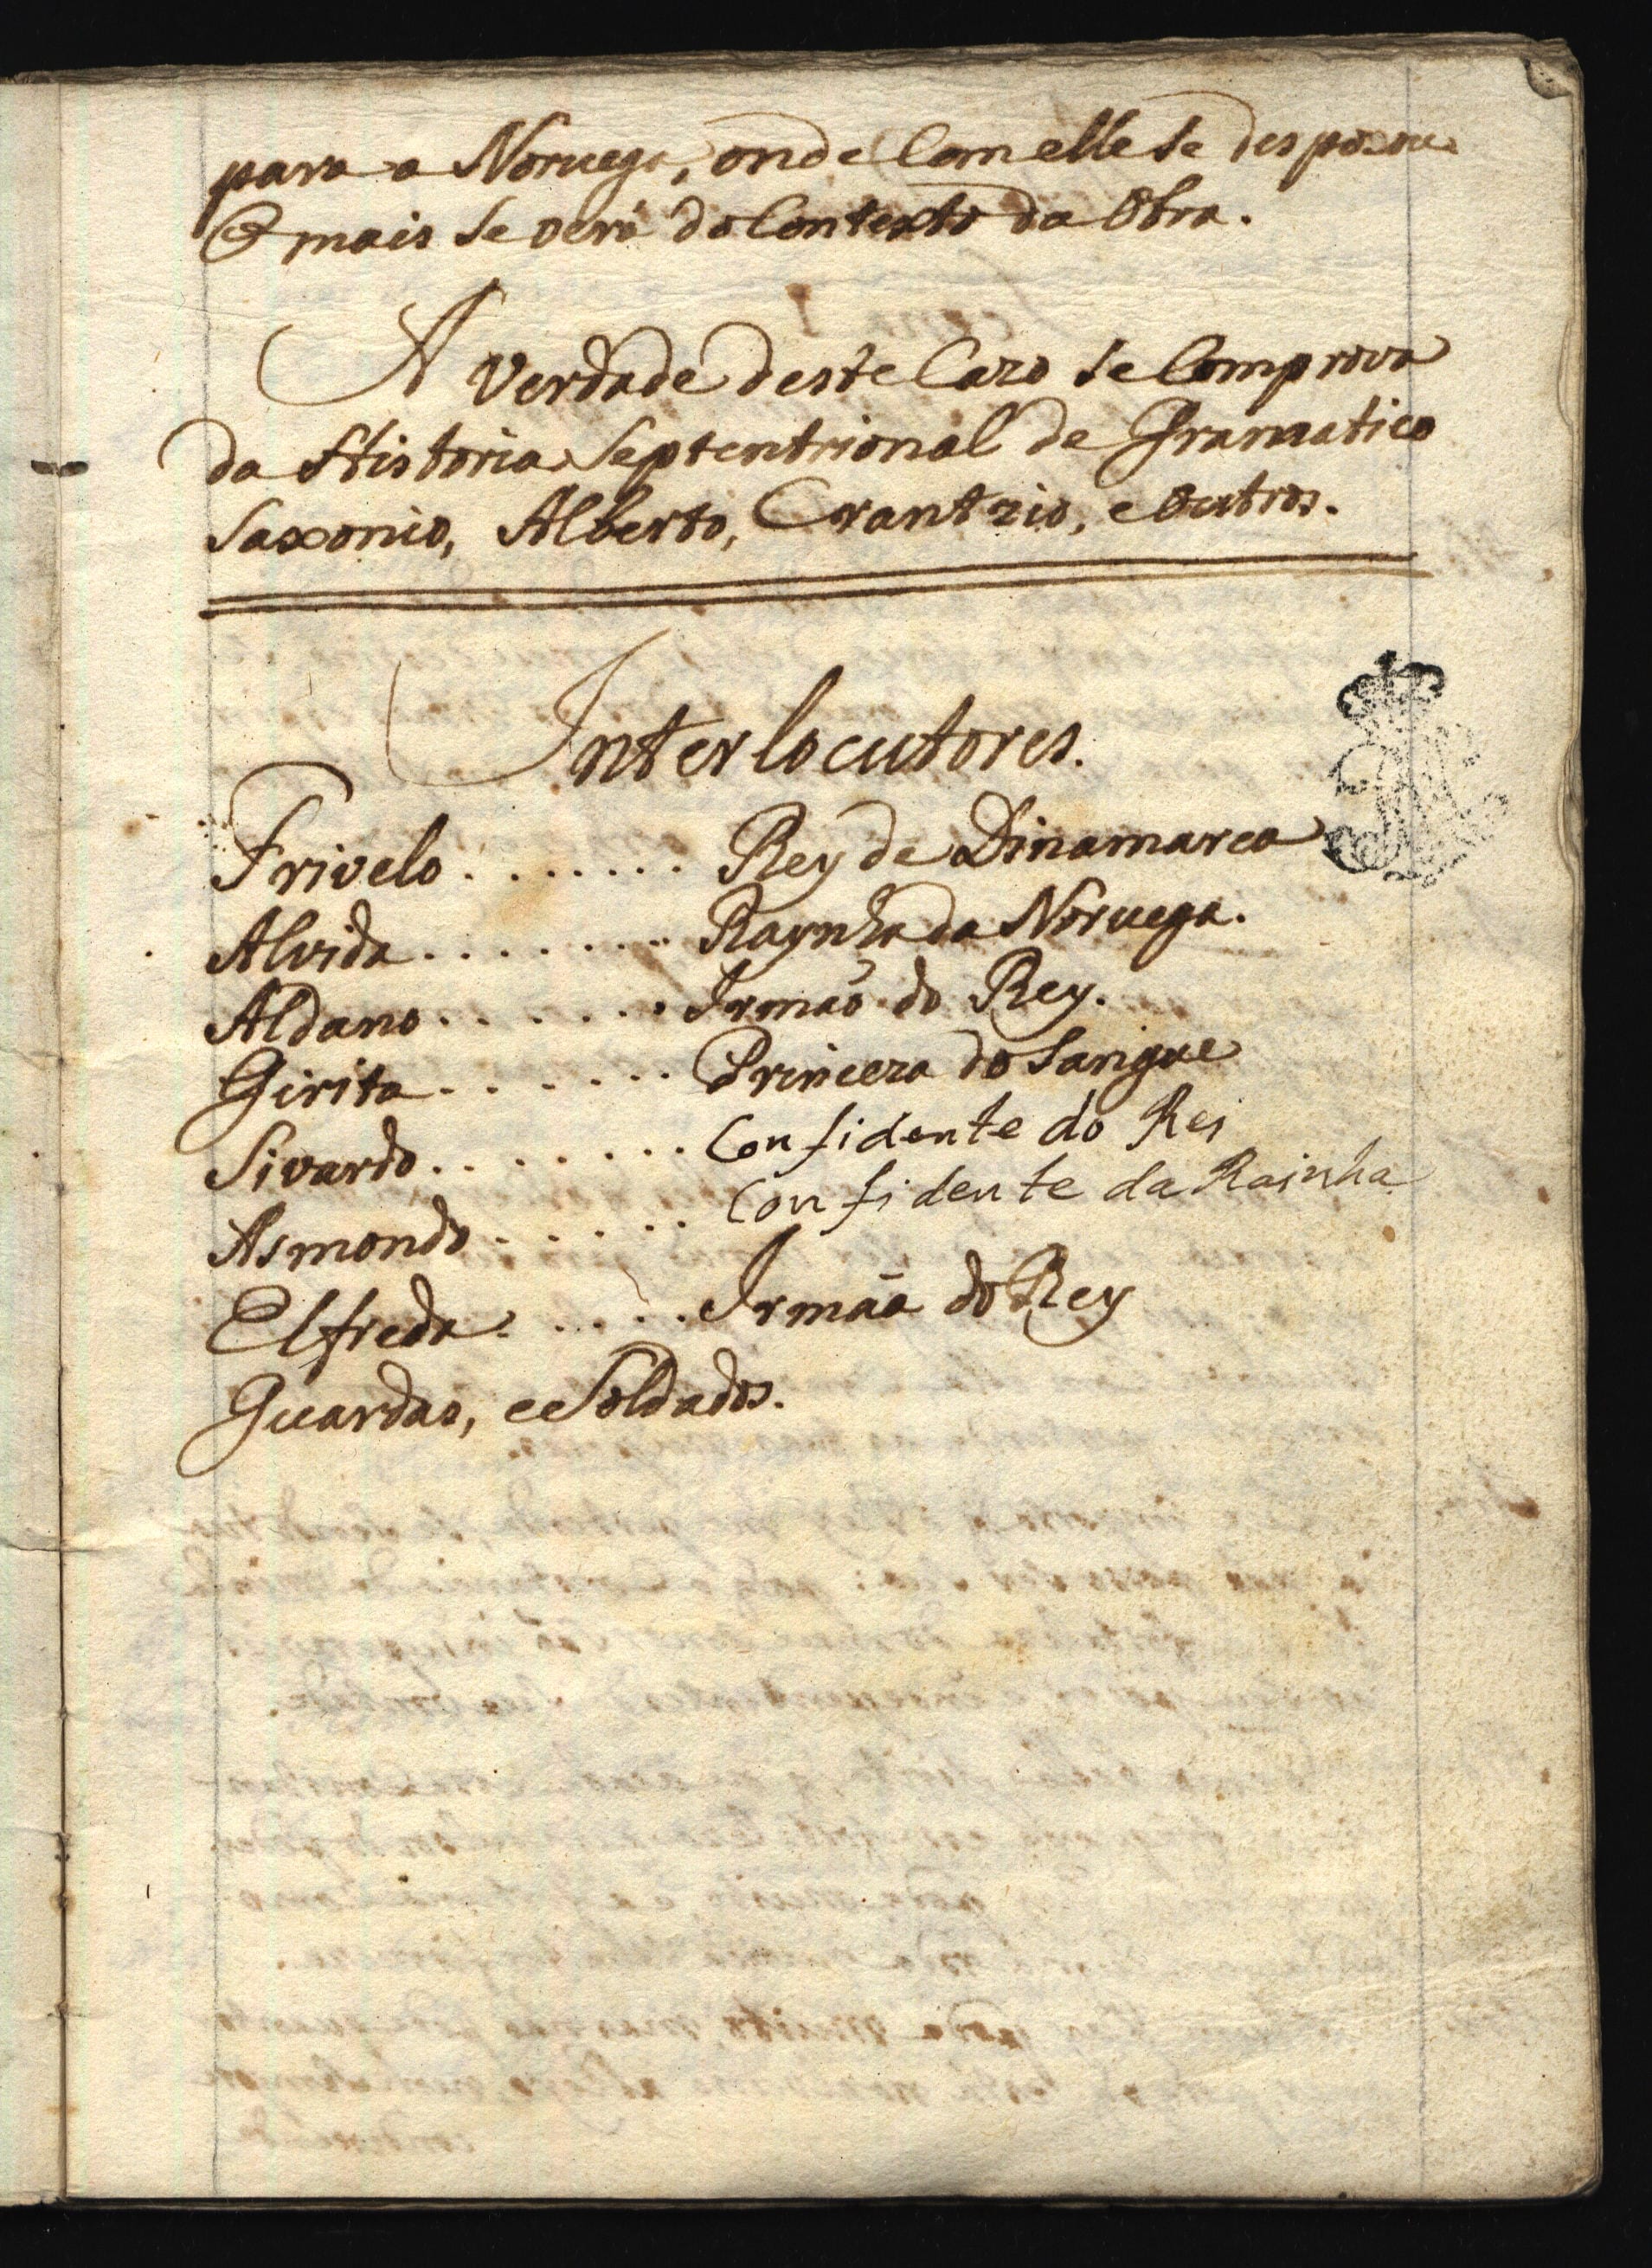 para a Noruega, onde Com elle se despozou
O mais se verá do Contexto da Obra.
A verdade deste Cazo se Comprova
da Historia Septentrional de Gramatico
Saxonio, Alberto, Crantzio, e Outros.
Interlocutores.
Frivelo . . . . . . . Rey de Dinamarca
Alvida . . . . . . . . Raynha da Noruega.
Aldano . . . . . . . Irmaõ do Rey.
Girita . . . . . . . Princeza do Sangue
Sivardo . . . . . . . . Confidente do Rei
Asmondo . . . . . . Confidente da Rainha
Elfreda . . . . . . Irmãa do Rey
Guardas, e Soldados.